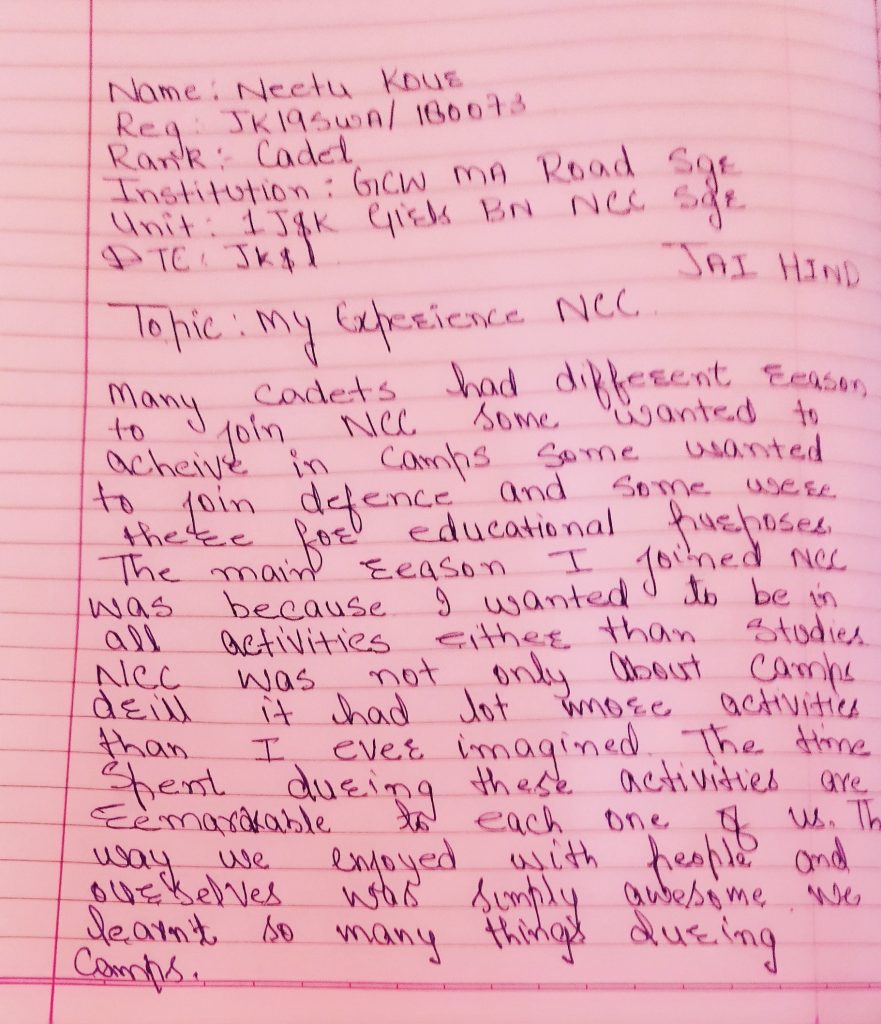 Name: Neetu Kour
Reg: JK19SWA/180073
Rank: Cadet
Institution: GCW MA Road Sgr
Unit: 1 J&K Girls BN NCC Sgr
DTC: JK&L
JAI HIND
Topic: My Experience NCC.
Many cadets had different reason
to join NCC some wanted to
acheive in camps some wanted
to join defence and some were
there for educational purposes.
The main reason I joined NCC
was because I wanted to be in
all activities either than studies.
NCC was not only about camps
drill it had lot more activities
than I ever imagined. The time
spent during these activities are
remarkable to each one of us. Th
way we enjoyed with people and
ourselves was simply awesome. We
learnt so many things during
Camps.